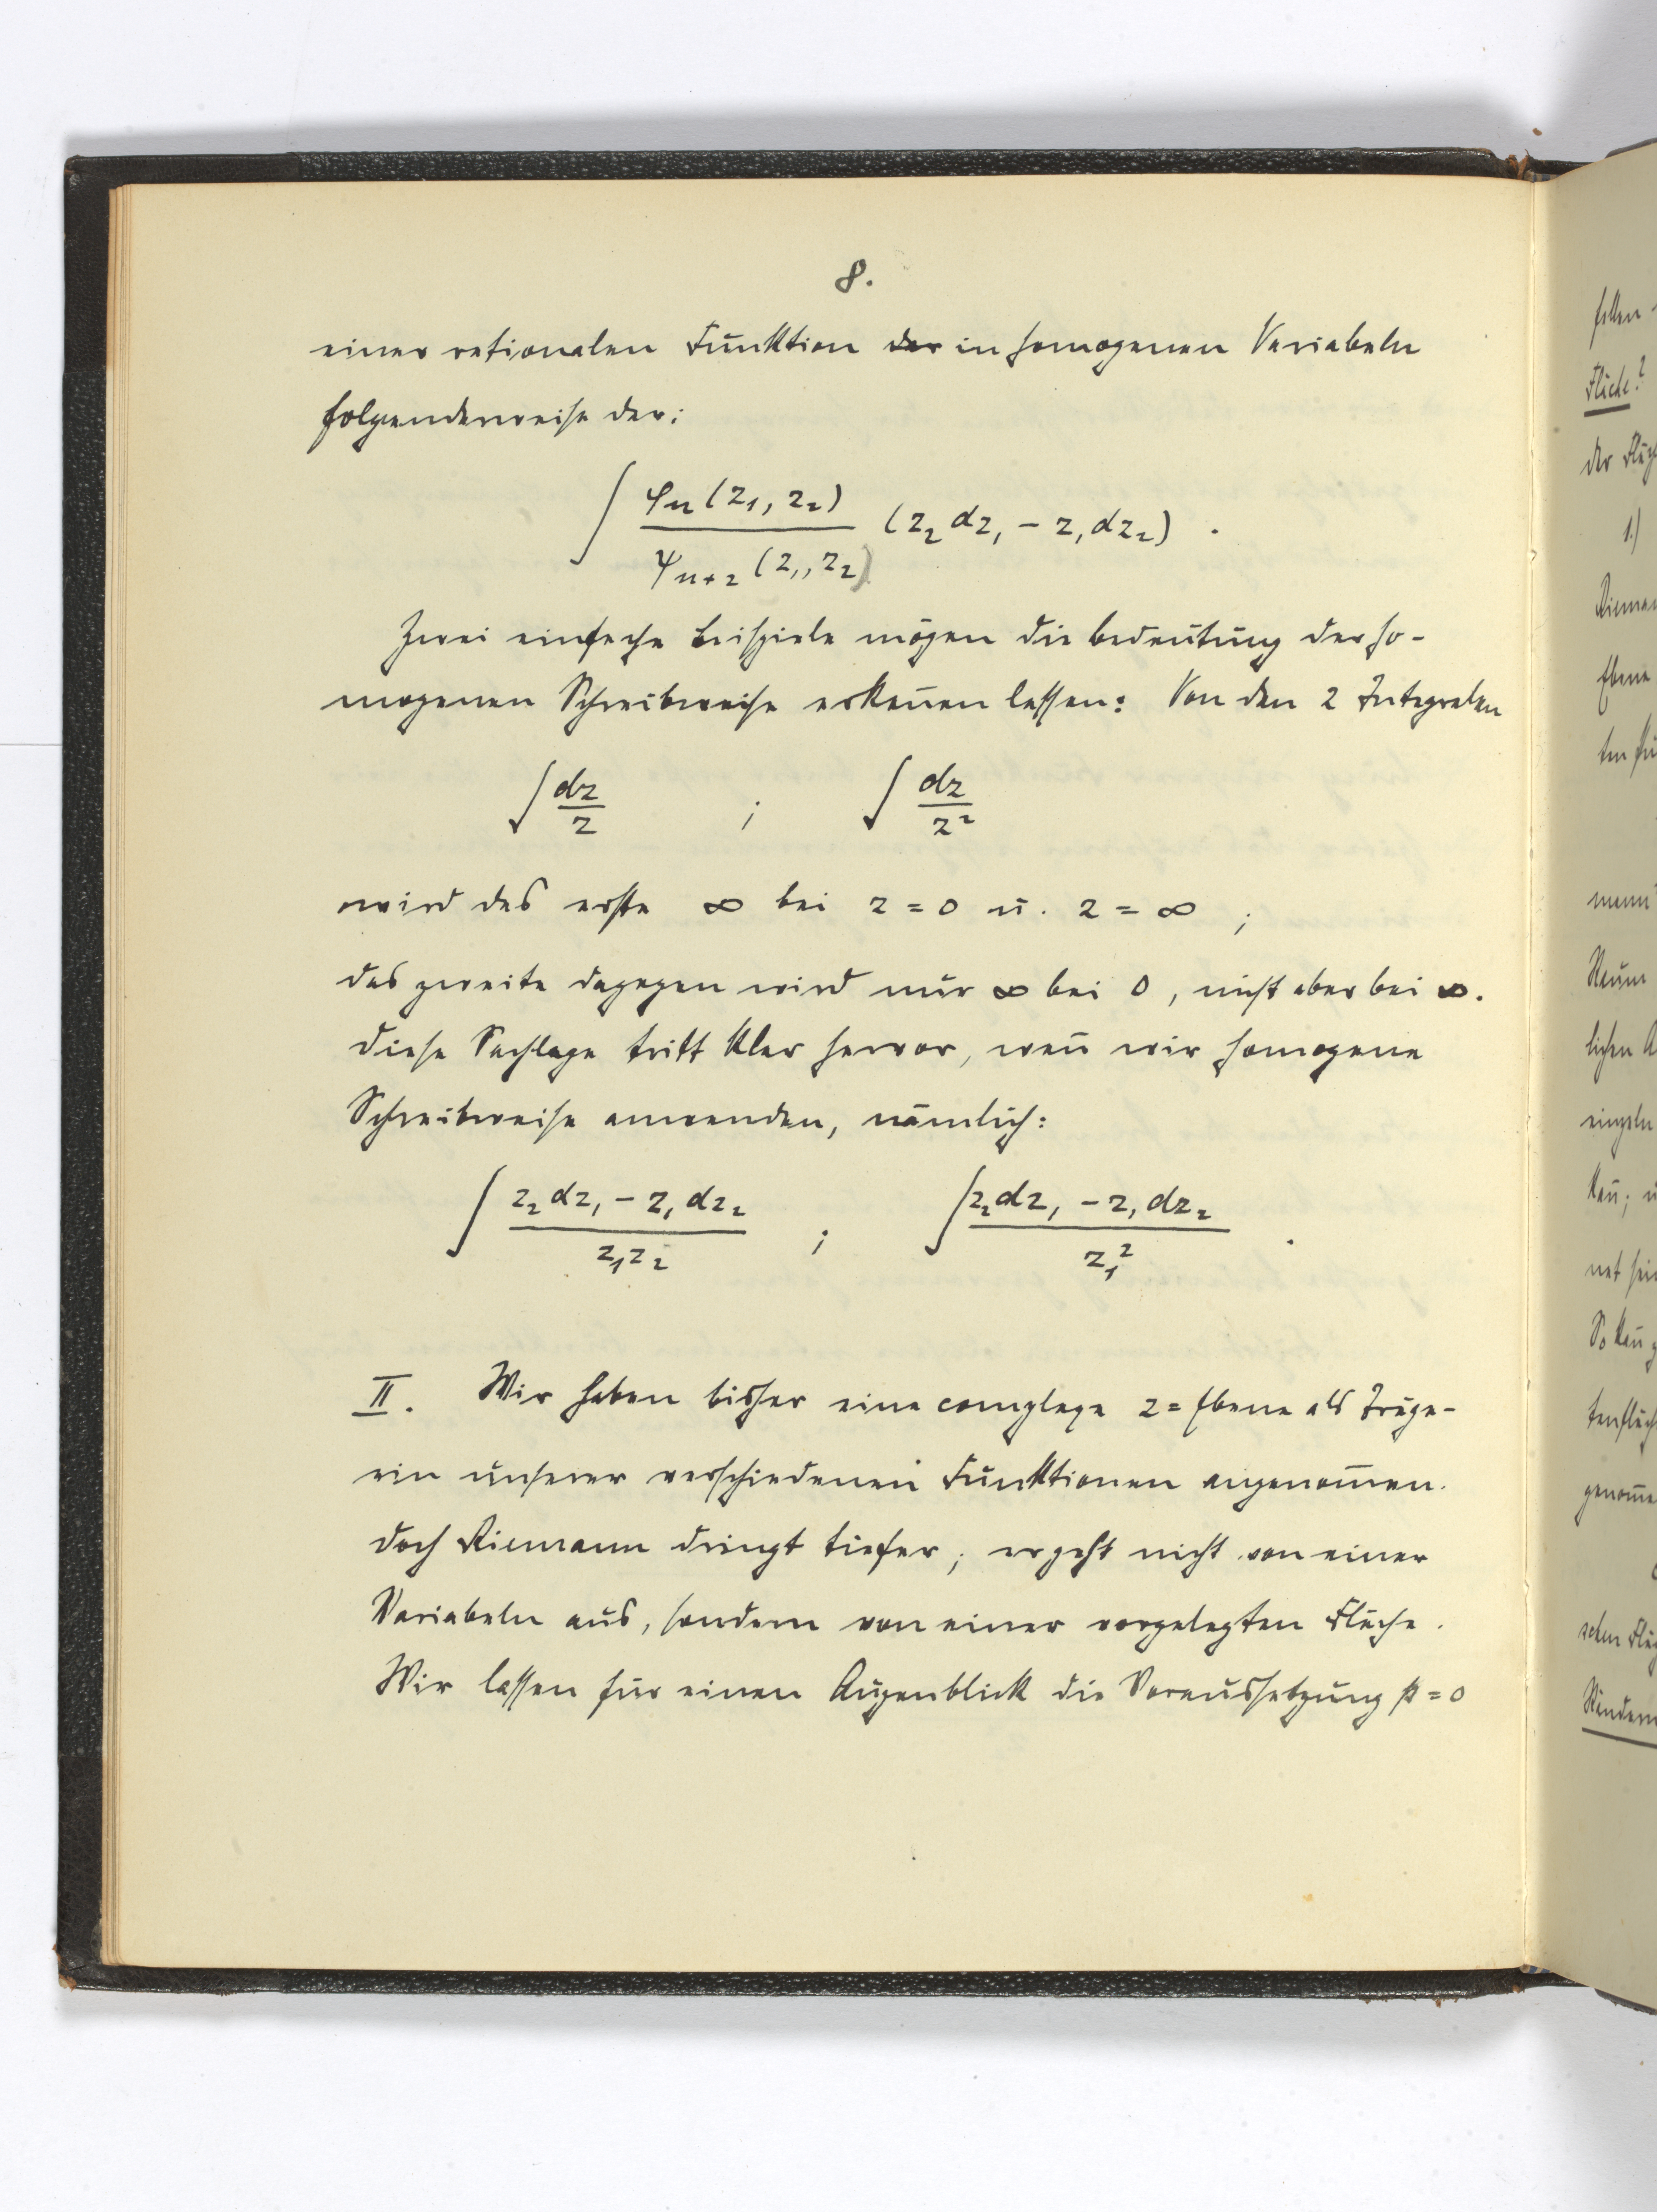 8.
einer rationalen Funktion der in homogenen Variabeln
folgenderweise dar:
∫ φn(z₁, z₂) / ψn+2(z₁, z₂) (z₂dz₁ − z₁dz₂) .
Zwei einfache Beispiele mögen die Bedeutung der ho-
mogenen Schreibweise erkeñen lassen: Von den 2 Integralen
∫ dz/z ; ∫ dz/z²
wird das erste ∞ bei z = 0 u. z = ∞ ;
das zweite dagegen wird nur ∞ bei 0, nicht aber bei ∞.
Diese Sachlage tritt klar hervor, weñ wir homogene
Schreibweise anwenden, nämlich:
∫ (z₂dz₁ − z₁dz₂) / z₁z₂ ; ∫ (z₂dz₁ − z₁dz₂) / z₁² .
II. Wir haben bisher eine complexe z = Ebene als Träge-
rin unserer verschiedenen Funktionen angenom̄en.
Doch Riemann dringt tiefer; er geht nicht von einer
Variabeln aus, sondern von einer vorgelegten Fläche.
Wir lassen für einen Augenblick die Voraussetzung p = 0
Fläche?
der
1.)
Ebene
lichen
einzeln
kañ;
net
So kañ